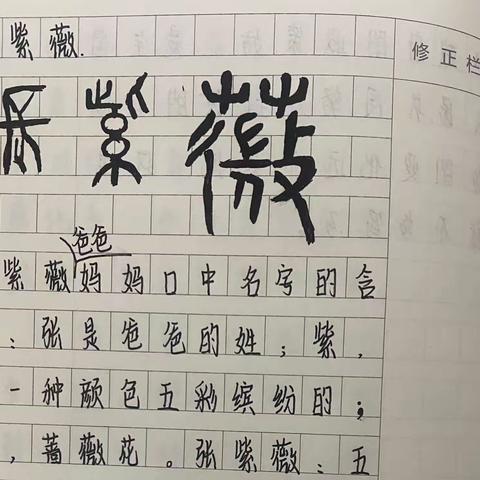 紫薇.
修正栏
紫薇
爸爸
紫薇妈妈口中名字的含
：张是爸爸的姓；紫，
一种颜色五彩缤纷的；
，蔷薇花。张紫薇：五